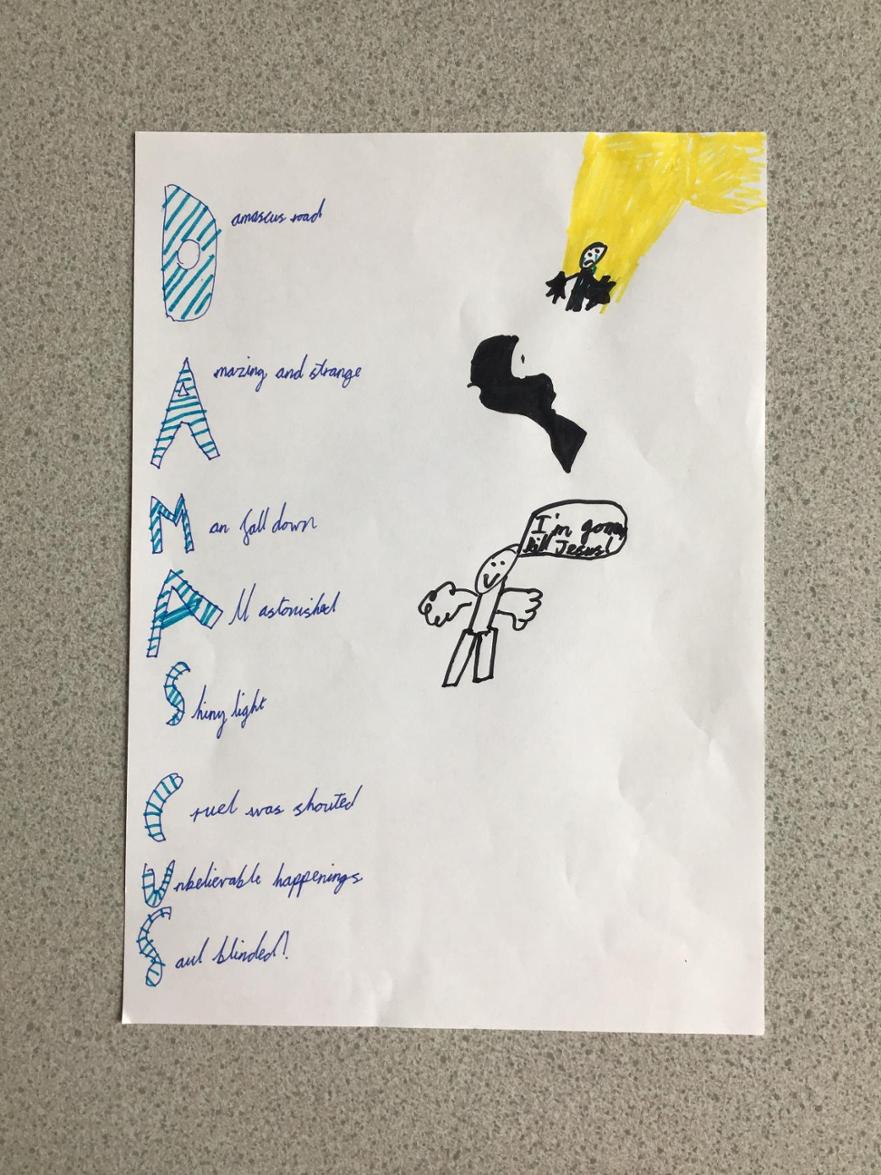 Damascus road
Amazing and strange
Man fall down
All astonished
Shiny light
Cruel was shouted
Unbelievable happenings
Saul blinded!
I'm gonna
kill Jesus!